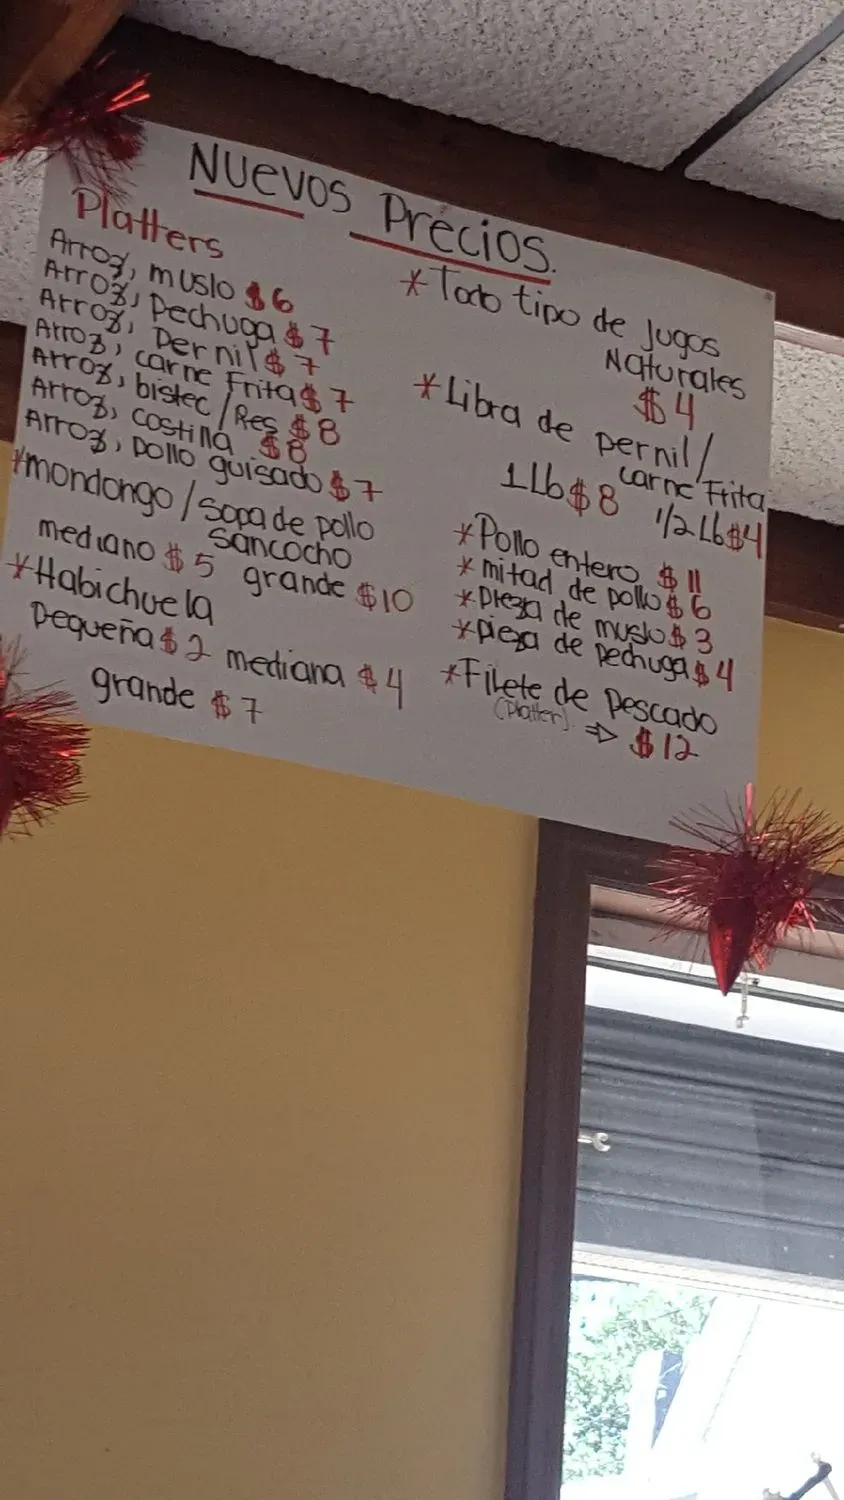 NUEVOS Precios.
Platters
Arroz, muslo $6
Arroz, Pechuga $7
Arroz, Pernil $7
Arroz, carne Frita $7
Arroz, bistec/Res $8
Arroz, costilla $8
Arroz, Pollo guisado $7
*mondongo/sopa de pollo
sancocho
mediano $5 grande $10
*Habichuela
Pequeña $2 mediana $4
grande $7
*Todo tipo de Jugos
Naturales
$4
*Libra de pernil/
carne Frita
1Lb $8 1/2 Lb $4
*Pollo entero $11
*mitad de pollo $6
*pieza de muslo $3
*pieza de Pechuga $4
*Filete de Pescado
(Platter) ⇒ $12